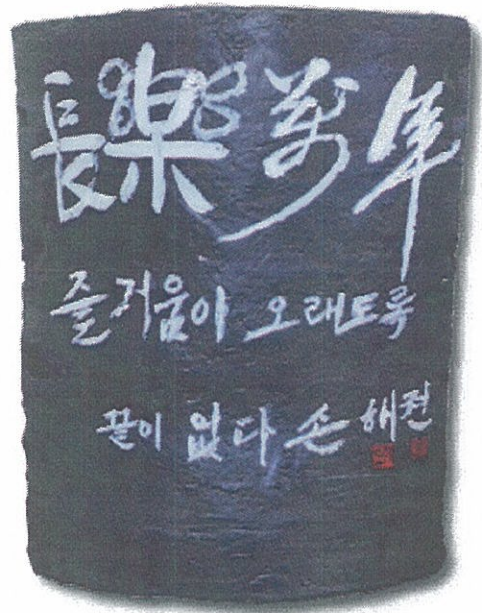 長樂萬年
즐거움이 오래도록
끝이 없다 손해천